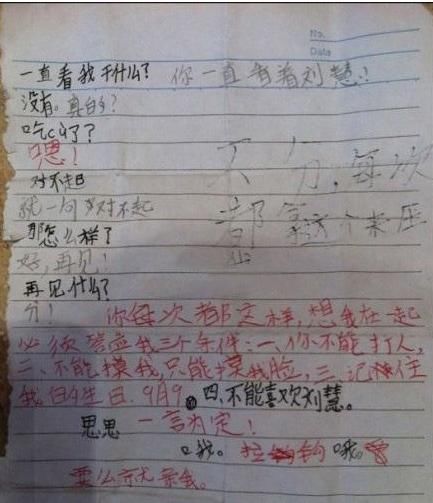 No.
Date
一直看我干什么？ 你一直看着刘慧！
没有。真的？
吃cù了？
嗯！
对不起
就一句对不起
那怎么样了
好，再见！
再见什么？
分！
不分，每次
都拿这个来压
你每次都这样，想我在一起
必须答应我三个条件：一、你不能打人，
二、不能摸我，只能摸我脸，三、记住
我的生日．9月9．四、不能喜欢刘慧。
思思 一言为定！
口我。拉钩 哦。
要么亲我。